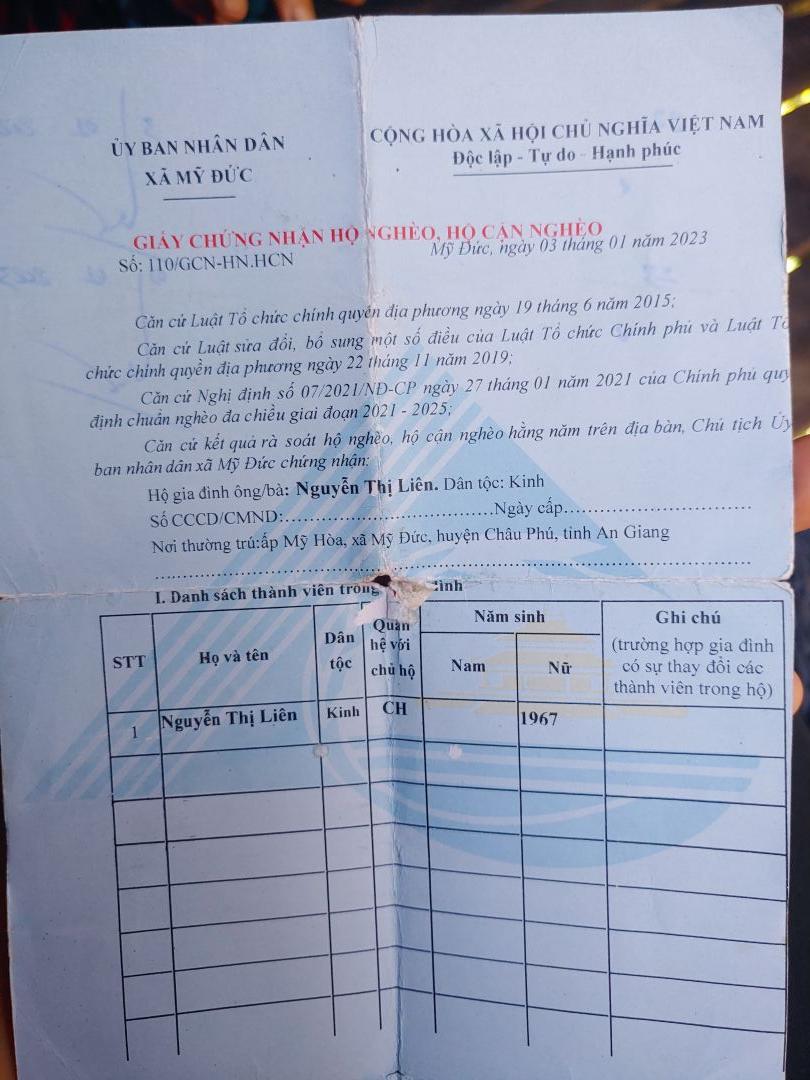 ỦY BAN NHÂN DÂN
XÃ MỸ ĐỨC
CỘNG HÒA XÃ HỘI CHỦ NGHĨA VIỆT NAM
Độc lập - Tự do - Hạnh phúc
GIẤY CHỨNG NHẬN HỘ NGHÈO, HỘ CẬN NGHÈO
Số: 110/GCN-HN.HCN
Mỹ Đức, ngày 03 tháng 01 năm 2023
Căn cứ Luật Tổ chức chính quyền địa phương ngày 19 tháng 6 năm 2015;
Căn cứ Luật sửa đổi, bổ sung một số điều của Luật Tổ chức Chính phủ và Luật Tổ
chức chính quyền địa phương ngày 22 tháng 11 năm 2019;
Căn cứ Nghị định số 07/2021/NĐ-CP ngày 27 tháng 01 năm 2021 của Chính phủ quy
định chuẩn nghèo đa chiều giai đoạn 2021 - 2025;
Căn cứ kết quả rà soát hộ nghèo, hộ cận nghèo hằng năm trên địa bàn, Chủ tịch Ủy
ban nhân dân xã Mỹ Đức chứng nhận:
Hộ gia đình ông/bà: Nguyễn Thị Liên. Dân tộc: Kinh
Số CCCD/CMND:....................................Ngày cấp................................
Nơi thường trú:ấp Mỹ Hòa, xã Mỹ Đức, huyện Châu Phú, tỉnh An Giang
....................................................................................................
I. Danh sách thành viên trong đình
STT
Họ và tên
Dân tộc
Quan hệ với chủ hộ
Năm sinh
Nam
Nữ
Ghi chú
(trường hợp gia đình
có sự thay đổi các
thành viên trong hộ)
1 Nguyễn Thị Liên Kinh CH 1967